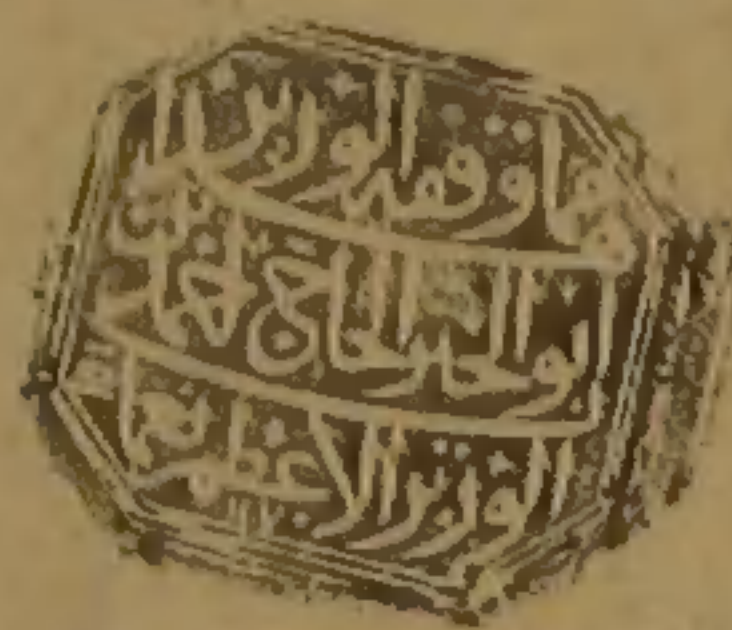 مما وقفه الوزير
ابو الخير الحاج احمد ابن
الوزير الاعظم نعمان